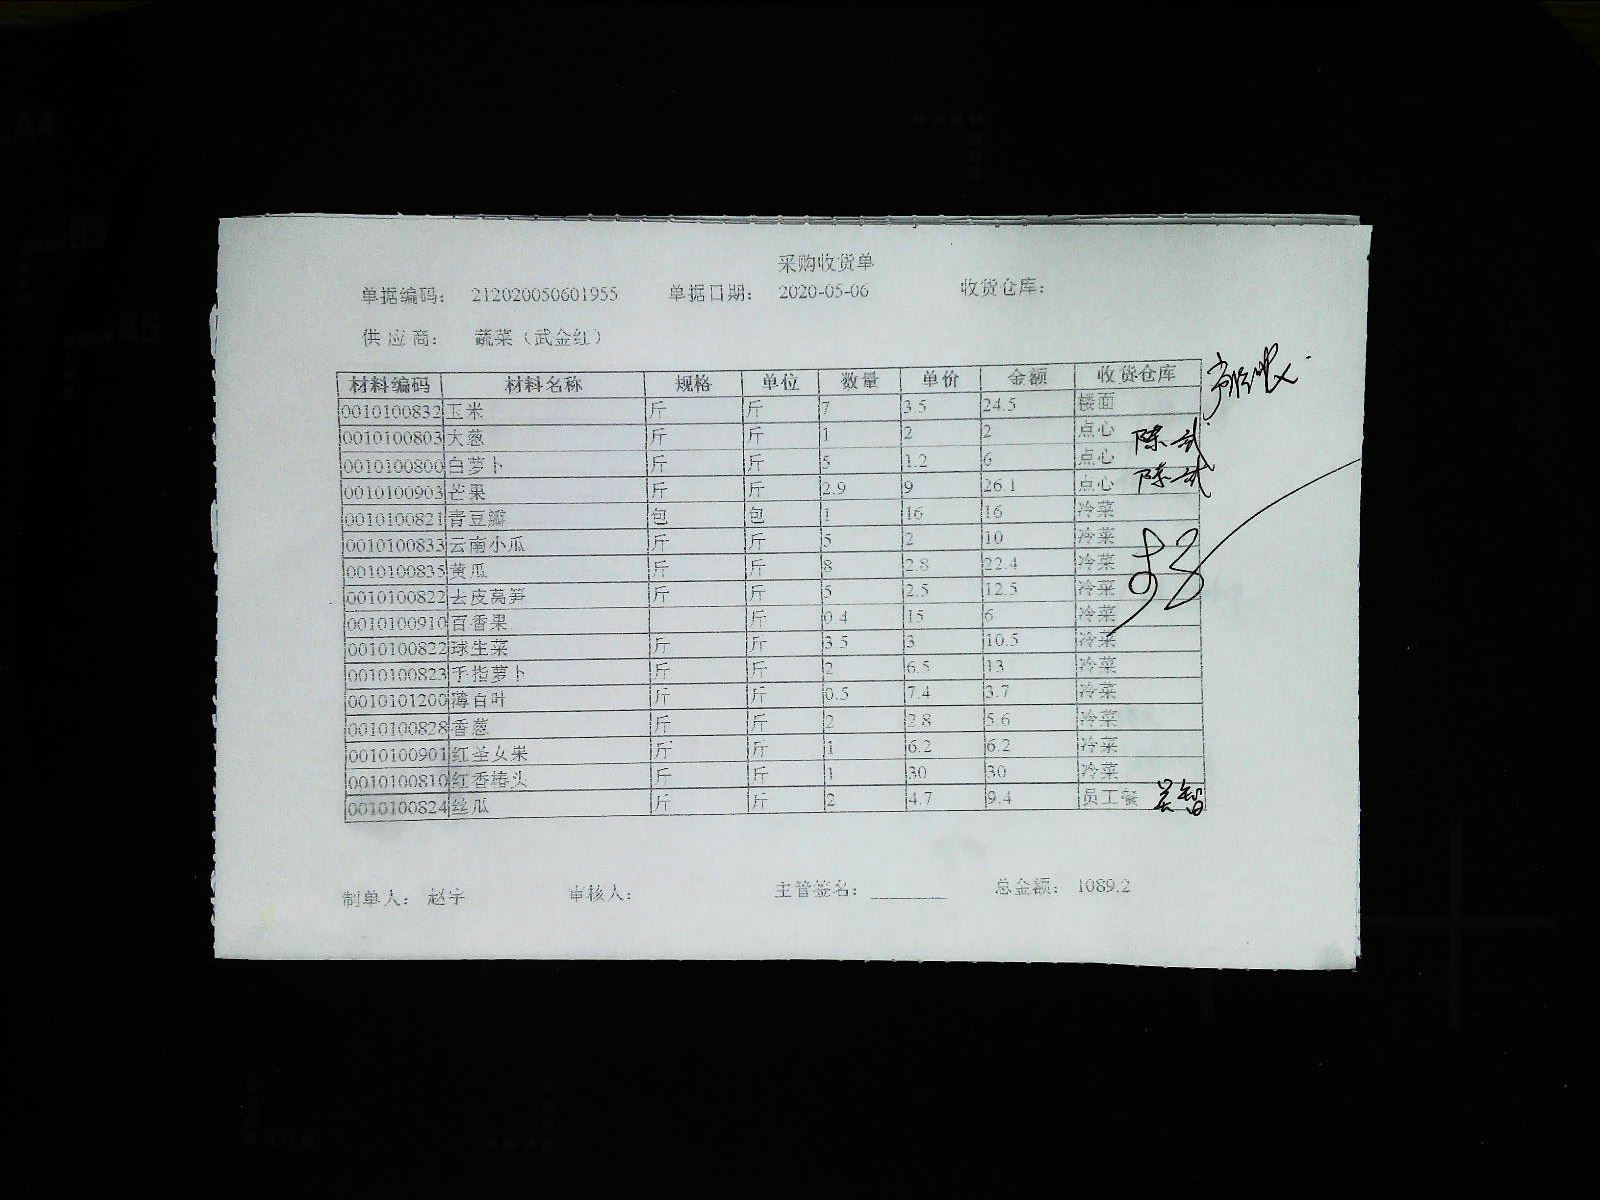 采购收货单
单据编码： 212020050601955 单据日期： 2020-05-06 收货仓库：
供应商： 蔬菜（武金红）
材料编码 材料名称 规格 单位 数量 单价 金额 收货仓库
0010100832 玉米 斤 斤 7 3.5 24.5 楼面
0010100803 大葱 斤 斤 1 2 2 点心 陈武
0010100800 白萝卜 斤 斤 5 1.2 6 点心
0010100903 芒果 斤 斤 2.9 9 26.1 点心 陈武
0010100821 青豆瓣 包 包 1 16 16 冷菜
0010100833 云南小瓜 斤 斤 5 2 10 冷菜
0010100835 黄瓜 斤 斤 8 2.8 22.4 冷菜
0010100822 去皮莴笋 斤 斤 5 2.5 12.5 冷菜
0010100910 百香果 斤 0.4 15 6 冷菜
0010100822 球生菜 斤 斤 3.5 3 10.5 冷菜
0010100823 手指萝卜 斤 斤 2 6.5 13 冷菜
0010101200 薄百叶 斤 斤 0.5 7.4 3.7 冷菜
0010100828 香葱 斤 斤 2 2.8 5.6 冷菜
0010100901 红圣女果 斤 斤 1 6.2 6.2 冷菜
0010100810 红香椿头 斤 斤 1 30 30 冷菜
0010100824 丝瓜 斤 斤 2 4.7 9.4 员工餐
制单人： 赵宇 审核人： 主管签名： 总金额： 1089.2